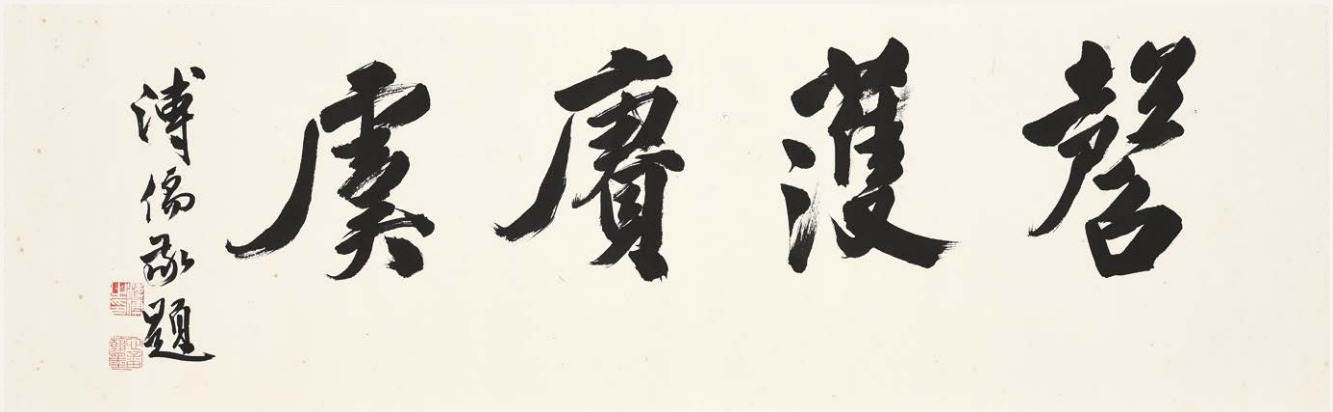 㲈濩賡虞
溥儒敬題